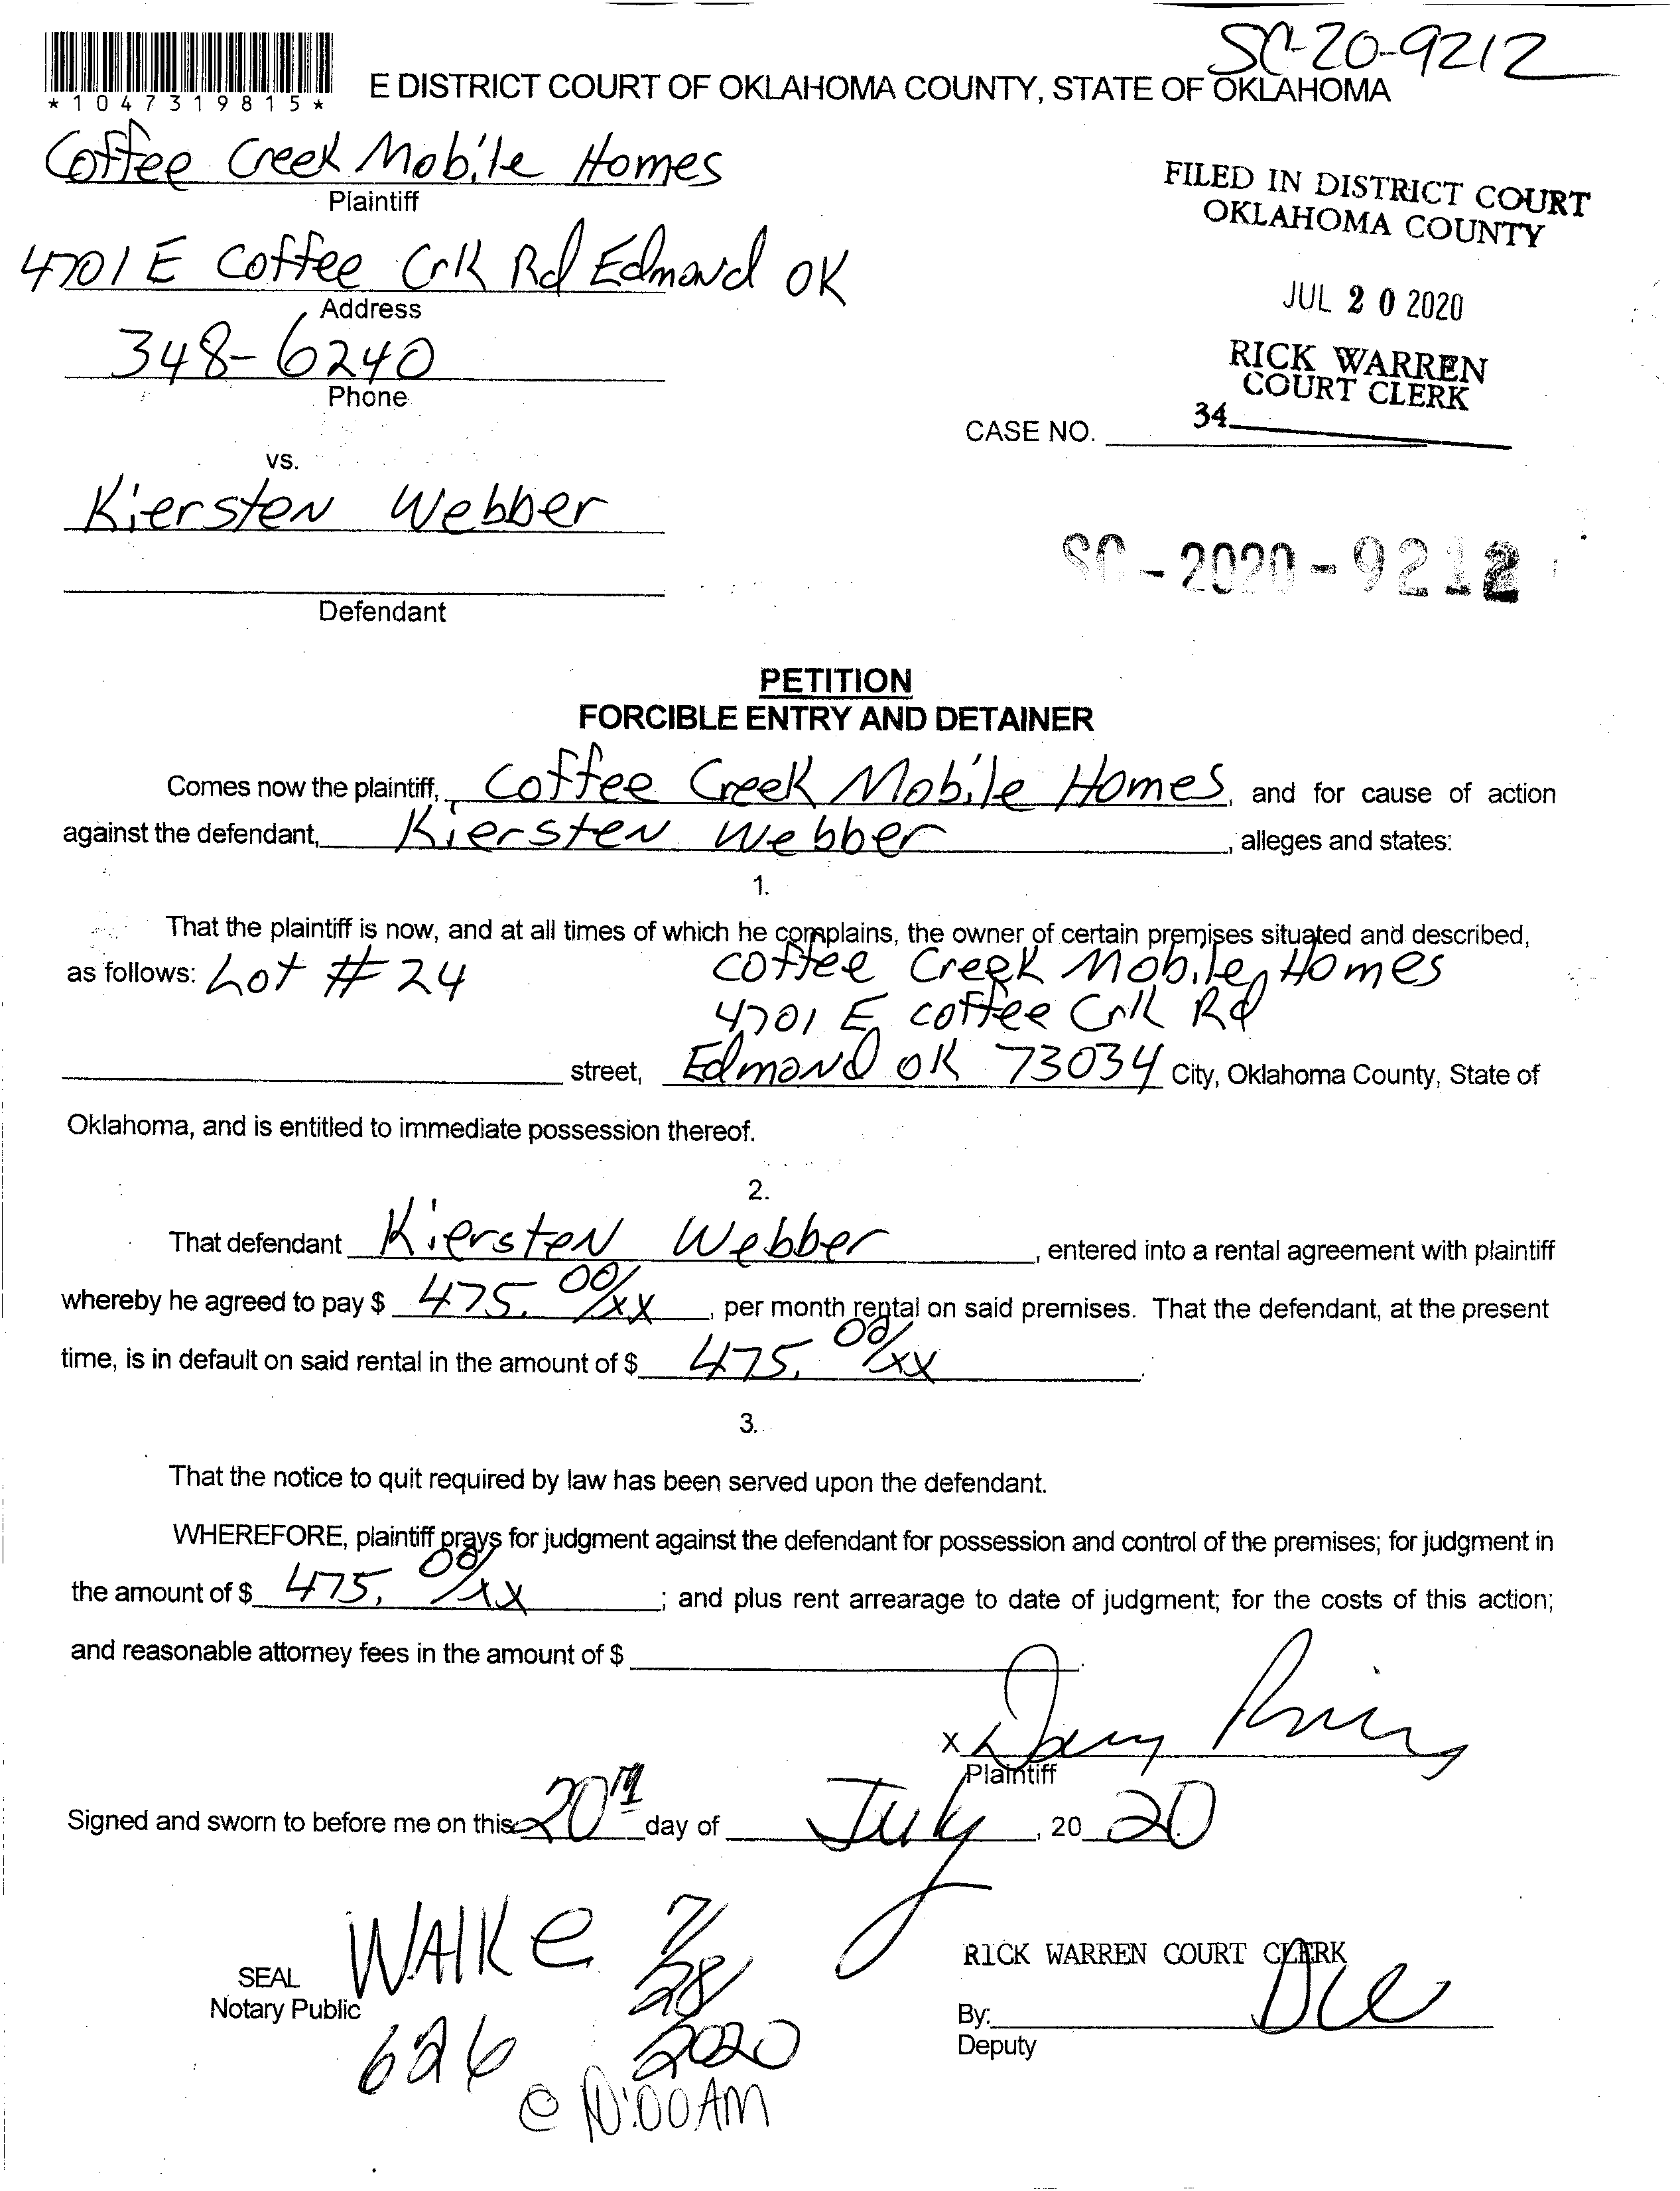 SC-20-9212
*1047319815*
E DISTRICT COURT OF OKLAHOMA COUNTY, STATE OF OKLAHOMA
Coffee Creek Mobile Homes
Plaintiff
FILED IN DISTRICT COURT
OKLAHOMA COUNTY
4701 E Coffee Crk Rd Edmond OK
Address
JUL 20 2020
348-6240
Phone
RICK WARREN
COURT CLERK
34
CASE NO.
vs.
Kiersten Webber
SC-2020-9212
Defendant
PETITION
FORCIBLE ENTRY AND DETAINER
Comes now the plaintiff, Coffee Creek Mobile Homes, and for cause of action
against the defendant, Kiersten Webber, alleges and states:
1.
That the plaintiff is now, and at all times of which he complains, the owner of certain premises situated and described,
as follows: Lot # 24 Coffee Creek Mobile Homes
4701 E Coffee Crk Rd
street, Edmond OK 73034 City, Oklahoma County, State of
Oklahoma, and is entitled to immediate possession thereof.
2.
That defendant Kiersten Webber, entered into a rental agreement with plaintiff
whereby he agreed to pay $ 475. 00/xx, per month rental on said premises. That the defendant, at the present
time, is in default on said rental in the amount of $ 475. 00/xx.
3.
That the notice to quit required by law has been served upon the defendant.
WHEREFORE, plaintiff prays for judgment against the defendant for possession and control of the premises; for judgment in
the amount of $ 475. 00/xx; and plus rent arrearage to date of judgment; for the costs of this action;
and reasonable attorney fees in the amount of $
X
Plaintiff
Signed and sworn to before me on this 20th day of July, 20 20
WAlKe 7/28/2020
SEAL
Notary Public
RICK WARREN COURT CLERK
By:
Deputy
626
@ 10:00 AM